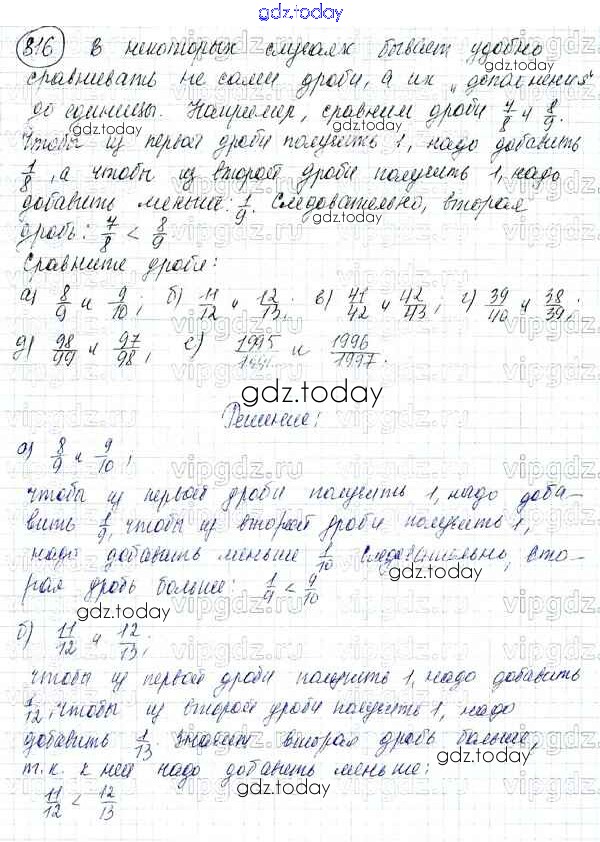 gdz.today
816 В некоторых случаях бывает удобно
сравнивать не сами дроби, а их "дополнения"
до единицы. Например, сравним дроби 7/8 и 8/9.
Чтобы из первой дроби получить 1, надо добавить
1/8, а чтобы из второй дроби получить 1, надо
добавить меньше: 1/9. Следовательно, вторая
дробь: 7/8 < 8/9
Сравните дроби:
а) 8/9 и 9/10; б) 11/12 и 12/13; в) 41/42 и 42/43; г) 39/40 и 38/39;
д) 98/99 и 97/98; е) 1995/ и 1996/1997.
gdz.today
Решение:
а) 8/9 и 9/10;
чтобы из первой дроби получить 1, надо доба-
вить 1/9, чтобы из второй дроби получить 1,
надо добавить меньше 1/10 следовательно, вто-
рая дробь больше: 1/9 < 9/10
gdz.today
б) 11/12 и 12/13;
чтобы из первой дроби получить 1, надо добавить
1/12, чтобы из второй дроби получить 1, надо
добавить 1/13. Значит вторая дробь больше,
т.к. к ней надо добавить меньше:
11/12 < 12/13
gdz.today